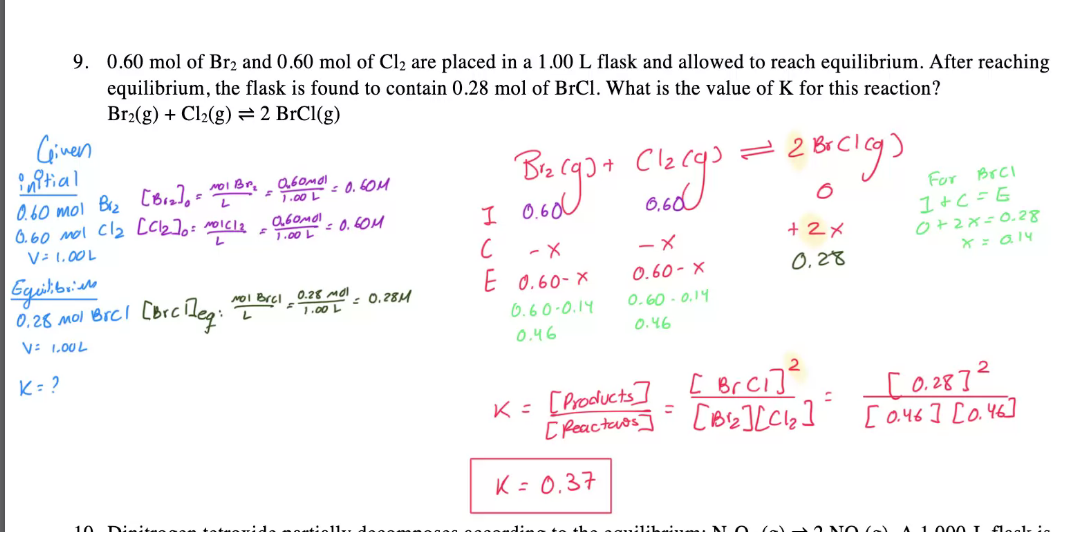 9. 0.60 mol of Br₂ and 0.60 mol of Cl₂ are placed in a 1.00 L flask and allowed to reach equilibrium. After reaching
equilibrium, the flask is found to contain 0.28 mol of BrCl. What is the value of K for this reaction?
Br₂(g) + Cl₂(g) ⇌ 2 BrCl(g)
Given
initial
0.60 mol Br₂ [Br₂]₀ = mol Br₂ / L = 0.60mol / 1.00 L = 0.60M
0.60 mol Cl₂ [Cl₂]₀ = mol Cl₂ / L = 0.60mol / 1.00 L = 0.60M
V = 1.00L
Equilibrium
0.28 mol BrCl [BrCl]eq: mol BrCl / L = 0.28 mol / 1.00 L = 0.28M
V = 1.00L
K = ?
Br₂(g) + Cl₂(g) ⇌ 2 BrCl(g)
I 0.60 0.60 0
C -x -x +2x
E 0.60-x 0.60-x 0.28
0.60-0.14 0.60-0.14
0.46 0.46
For BrCl
I + C = E
0 + 2x = 0.28
x = 0.14
K = [Products] / [Reactants] = [BrCl]² / [Br₂][Cl₂] = [0.28]² / [0.46][0.46]
K = 0.37